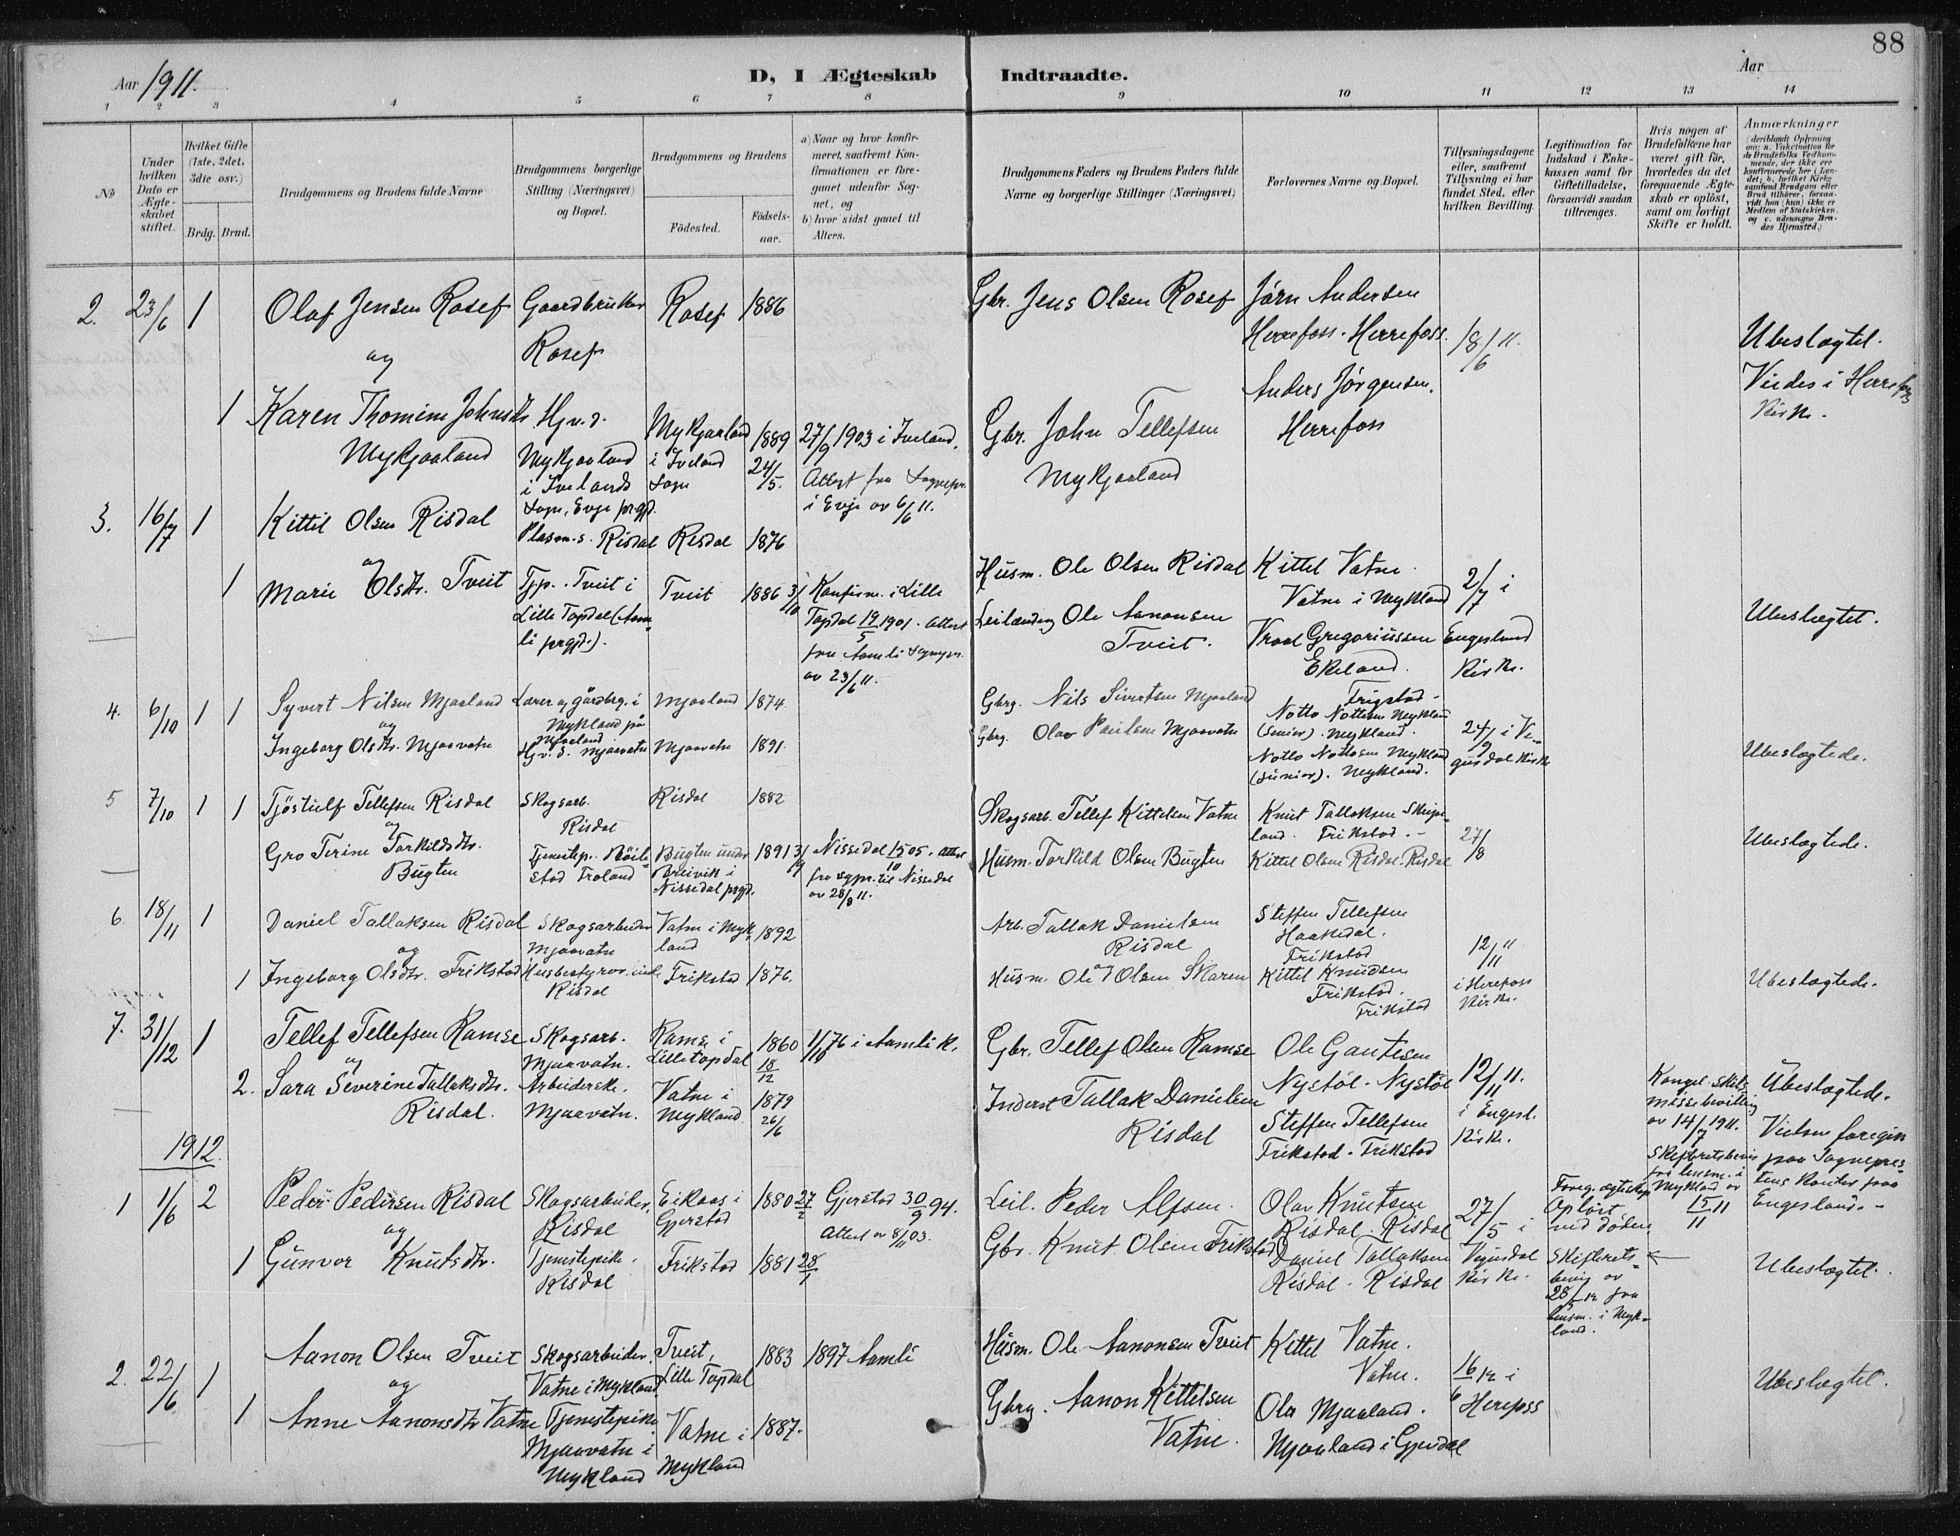 88
Aar 1911.
D, I Ægteskab Indtraadte.
Aar
1 2 3 4 5 6 7 8 9 10 11 12 13 14
No
Under hvilken Dato er Ægteskabet stiftet.
Hvilket Gifte (1ste, 2det, 3die osv.)
Brdg. Brud.
Brudgommens og Brudens fulde Navne
Brudgommens borgerlige Stilling (Næringsvei) og Bopæl.
Brudgommens og Brudens
Födested.
Födsels-aar.
a) Naar og hvor konfirmeret, saafremt Konfirmationen er foregaaet udenfor Sognet, og
b) hvor sidst gaaet til Alters.
Brudgommens Faders og Brudens Faders fulde Navne og borgerlige Stillinger (Næringsvei)
Forlovernes Navne og Bopæl.
Tillysningsdagene eller, saafremt Tillysning ei har fundet Sted, efter hvilken Bevilling.
Legitimation for Indskud i Enkekassen samt for Giftetilladelse, forsaavidt saadan tiltrænges.
Hvis nogen af Brudefolkene har været gift før, hvorledes da det foregaaende Ægteskab er oplöst, samt om lovligt Skifte er holdt.
Anmærkninger (deriblandt Oplysning om: a. Vakcination for de Brudefolks Vedkommende, der ikke ere konfirmerede her i Landet; b. hvilket Kirkesamfund Brudgom eller Brud tilhörer, forsaavidt han (hun) ikke er Medlem af Statskirken, og c. udensogns Brudes Hjemsted.)
2. 23/6 1 Olaf Jensen Rosef Gaardbruker Rosef Rosef 1886 Gbr. Jens Olsen Rosef Jörn Andersen Herrefoss. Herrefoss. 18/6 11. Ubeslægtet.
og Anders Jørgensen. Herrefoss Viedes i Herrefoss Kirke.
1 Karen Thomine Johnsdtr. Mykjaaland Hj.v.d. Mykjaaland i Ivelands Sogn, Evje prgd. Mykjaaland i Iveland Sogn 1889 24/5. 27/9 1903 i Iveland. Attest fra Sognepr. i Evje av 6/6 11. Gbr. John Tellefsen Mykjaaland
3. 16/7 1 Kittil Olsen Risdal Plasm.s. Risdal Risdal 1876 Husm. Ole Olsen Risdal Kittel Vatne. Vatne i Mykland 2/7 i Engesland Kirke.
og
1 Marie Olsdtr. Tveit Tjp. Tveit i Lille Topdal (Aamli prgjd.). Tveit 1886 3/10 Konfirm. i Lille Topdal 19/5 1901. Attest fra Aamli Sognepr. av 23/6 11. Leilænding Ole Aanonsen Tveit. Vraal Gregoriussen Ekeland. Ubeslægtet.
4. 6/10 1 1 Syvert Nilsen Mjaaland Lærer og gårdbr. i Mykland på Mjaaland Mjaaland 1874. Gbrg. Nils Sivertsen Mjaaland Frigstad. Notto Nottosen Mykland (senior). Mykland.
og
Ingeborg Olsdtr. Mjaavatn Hj.v.d. Mjaavatn Mjaavatn 1891. Gbrg. Olav Paulsen Mjaavatn Notto Nottosen Mykland (junior). Mykland. 24/9 i Vegusdal Kirke Ubeslægtede.
5 7/10 1 1 Tjöstulf Tellefsen Risdal Skogsarb. Risdal Risdal 1882 Skogsarb. Tellef Kittelsen Vatne Knut Tallaksen Skripeland. Frikstad. 27/8
og
Gro Terine Torkildsdtr. Bugten Tjenestep. Froland Bugten under Breivik i Nissedal prgd. 1891 3/9 Nissedal 15/10 05. Attest fra sgpr. til Nissedal av 28/8 11. Husm. Torkild Olsen Bugten Kittel Olsen Risdal. Risdal Ubeslægtede.
6. 18/11 1 Daniel Tallaksen Risdal Skogsarbeider Mjaavatn Vatne i Mykland 1892 Arb. Tallak Danielsen Risdal Steffen Tellefsen Haakedal. Frikstad 12/11 11 i Herefoss Kirke.
og
1 Ingeborg Olsdtr. Frikstad Husbestyrerinde Risdal Frikstad 1876. Husm. Ole Olsen Skaren Kittel Knudsen Frikstad. Frikstad Ubeslægtede.
7. 31/12 1 Tellef Tellefsen Ramse Skogsarb. Mjaavatn. Ramse i Lilletopdal 1860 18/12 1/10 76 i Aamli K. Gbr. Tellef Olsen Ramse Ole Gautesen Nystöl. Nystöl 12/11 11. i Engesl. Kirke.
og
2. Sara Severine Tallaksdtr. Risdal. Arbeiderske. Mjaavatn. Vatne i Mykland. 1879 26/6 Inderst Tallak Danielsen Risdal Steffen Tellefsen Frikstad. Frikstad Kongel. Skilsmissebevilling av 14/7 1911. Skifteretsbevis fra lensm. i Mykland av 15/11 11 Ubeslægtede. Vielsen foregik paa Sogneprestens Kontor paa Engesland.
1912.
1 1/6 2 Peder Pedersen Risdal Skogsarbeider. Risdal Eikaas i Gjerstad 1880 27/2 Gjerstad 30/9 94. Attest av 8/11 03. Leil. Peder Alfsen. Olav Knutsen Risdal. Risdal 27/5 i Vegusdal Kirke. Foreg. ægteskap opløst ved døden. Skifterets-bevis av 28/5 12 fra lensm. i Mykland.
og
1 Gunvor Knutsdtr. Tjenestepike. Risdal Frikstad 1881 28/1 Gbr. Knut Olsen Frikstad Daniel Tallaksen Risdal. Risdal Ubeslægtet.
2. 22/6 1 Aanon Olsen Tveit Skogsarbeider. Vatne i Mykland Tveit, Lille Topdal 1883 1897 Aamli Husm. Ole Aanonsen Tveit Kittel Vatne. Vatne. 16/6 12 i Herefoss
og
1 Anne Aanonsdtr Vatne Tjenestepike Mjaavatn i Mykland Vatne i Mykland 1887. Gbrg. Aanon Kittelsen Vatne. Ola Mjaaland. Mjaaland i Gjevdal Ubeslægtet.